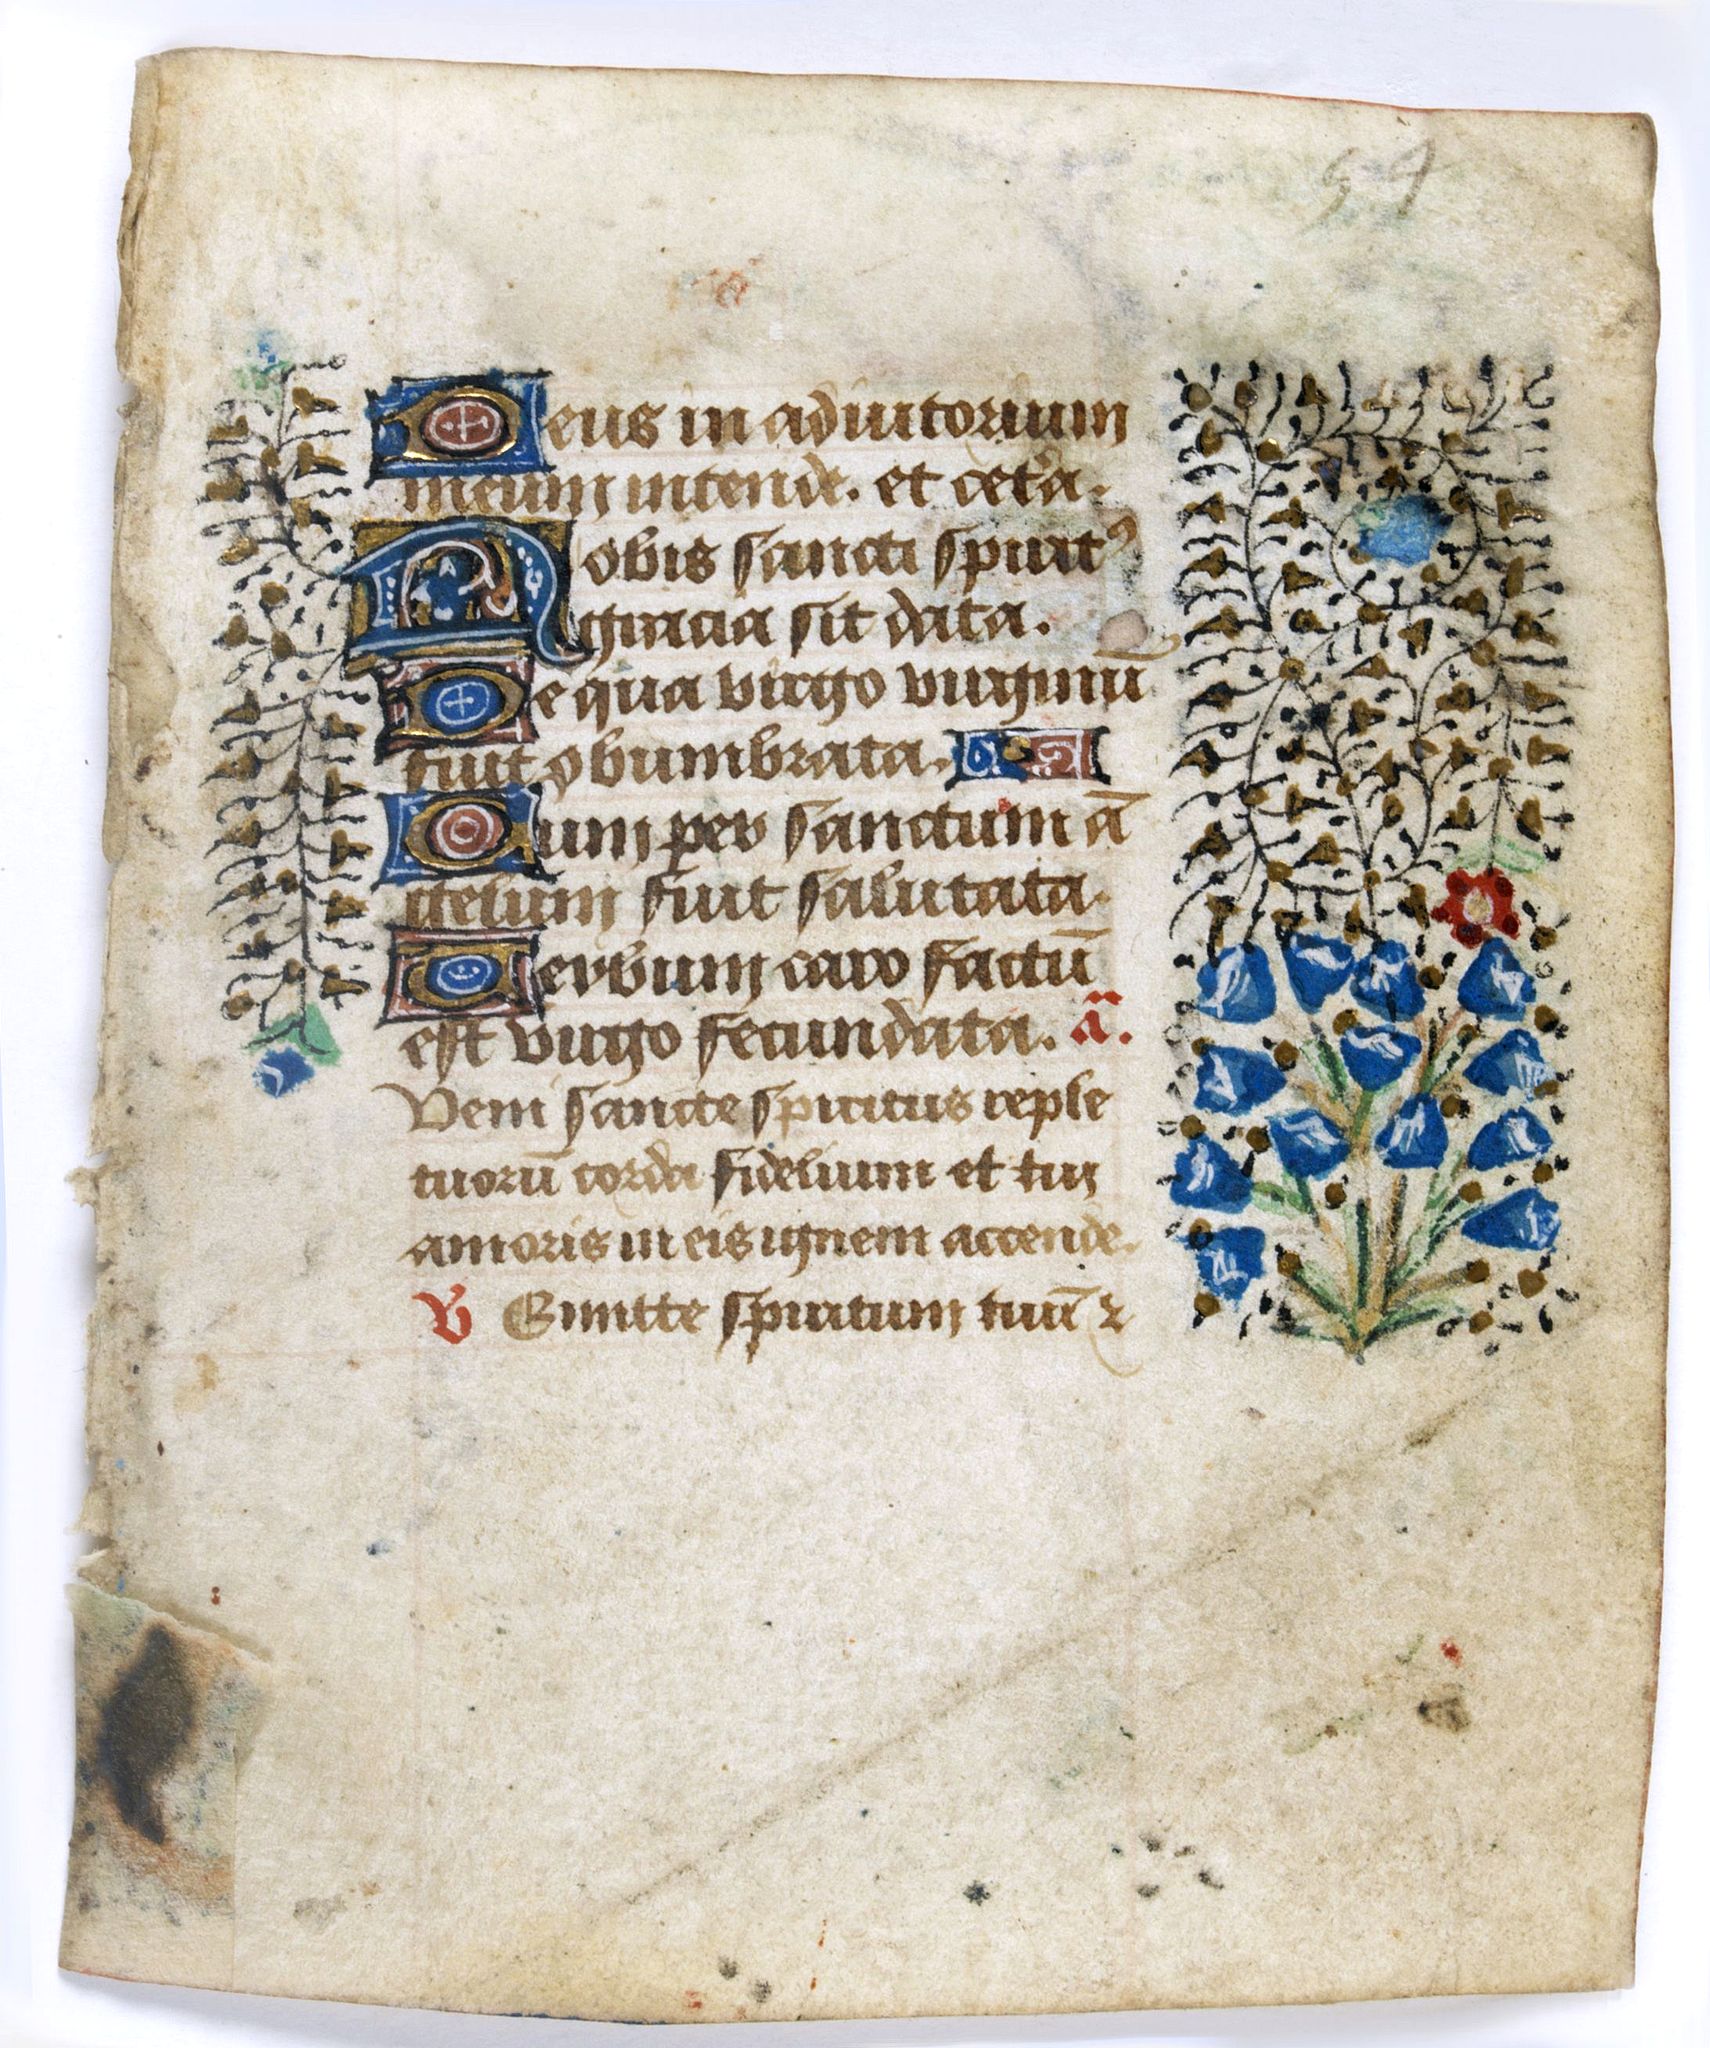 54
Deus in adiutorium
meum intende. et cet'a.
Nobis sancti spirit⁹
gracia sit data.
De qua virgo virginū
fuit obumbrata.
Cum per sanctum ā
gelum fuit salutata.
Verbum caro factū
est virgo fecundata. a.
Veni sancte spiritus reple
tuorū corda fidelium et tui
amoris in eis ignem accende.
V Emitte spiritum tuū ⁊